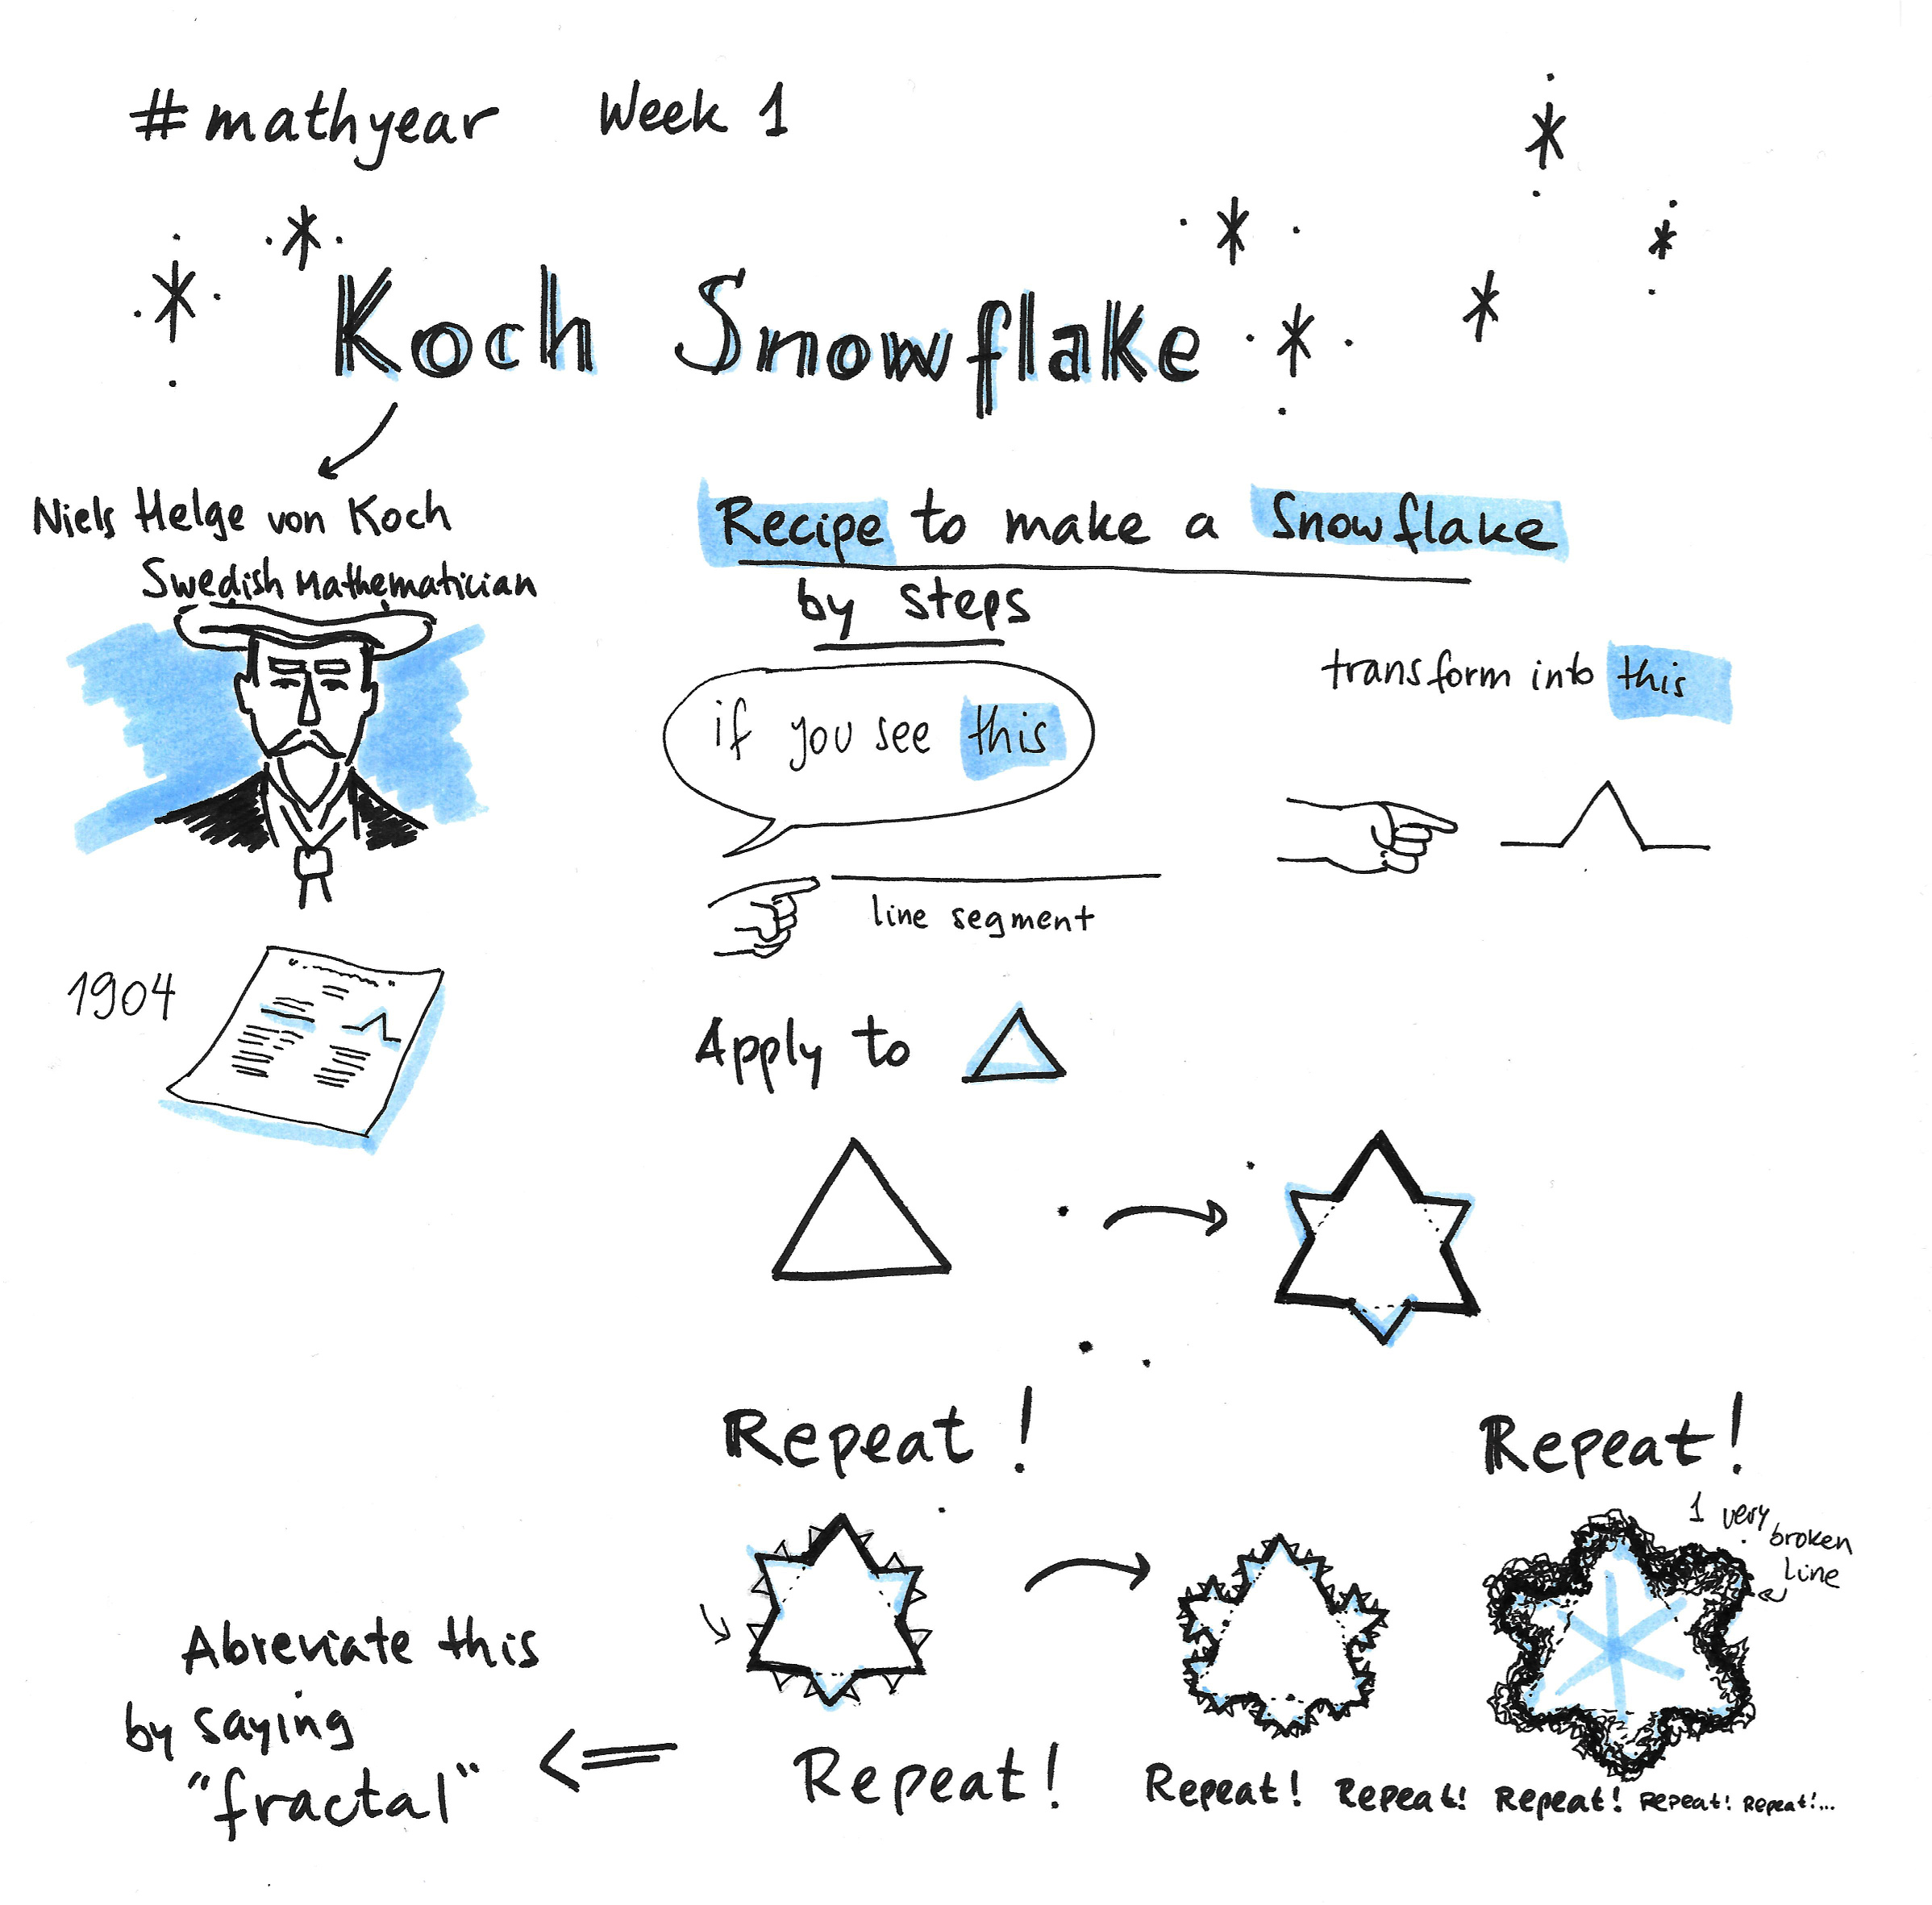 #mathyear Week 1
Koch Snowflake
Niels Helge von Koch
Swedish Mathematician
1904
Recipe to make a Snowflake
by steps
if you see this
line segment
transform into this
Apply to
Repeat!
Repeat!
1 very
broken
line
Repeat! Repeat! Repeat! Repeat! Repeat! Repeat!...
Abreviate this
by saying
"fractal"